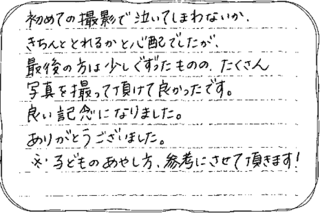 初めての撮影で泣いてしまわないか、
きちんととれるかと心配でしたが、
最後の方は少しぐずったものの、たくさん
写真を撮って頂けて良かったです。
良い記念になりました。
ありがとうございました。
※子どものあやし方、参考にさせて頂きます!